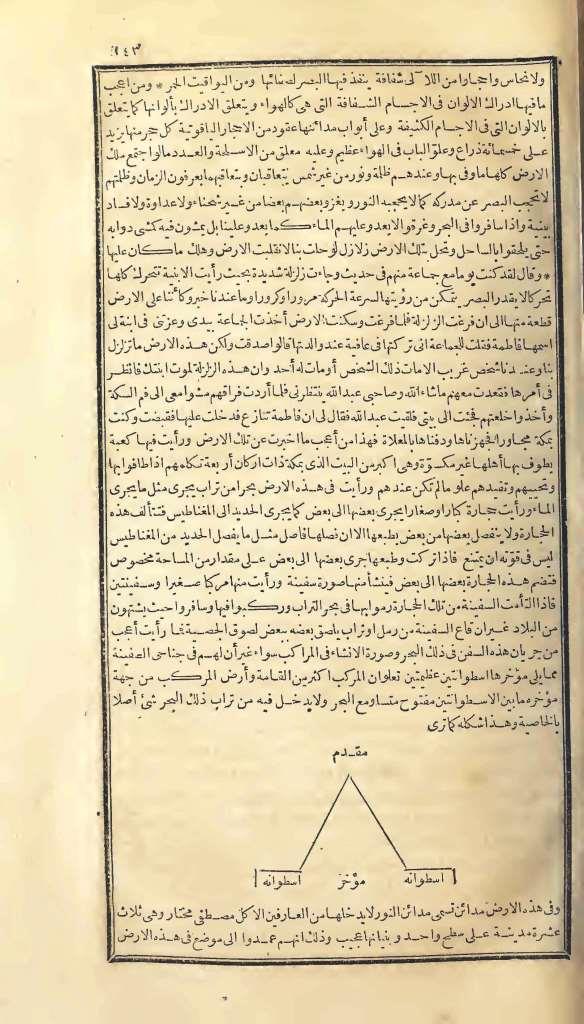 ١٤٣
ولا نحاس وأحجارا من اللآلى شفافة ينفذ فيها البصر لصفائها ومن اليواقيت الحمر * ومن أعجب
ما فيها ادراك الالوان فى الاجسام الشفافة التى هى كالهواء ويتعلق الادراك بألوانها كما يتعلق
بالالوان التى فى الاجسام الكثيفة وعلى أبواب مدائنها عقود من الاحجار الياقوتية كل حجر منها يزيد
على خسمائة ذراع وعلو الباب فى الهواء عظيم وعليه معلق من الاسلحة والعدد مالوا جتمع ملك
الارض كلها ما وفى بها وعندهم ظلمة ونور من غير شمس يتعاقبان وبتعاقبهما يعرفون الزمان وظلمتهم
لا تحجب البصر عن مدركه كما لا يحجبه النور ويغزو بعضهم بعضا من غير شحناء ولا عداوة ولا فساد
بينية واذا سافروا فى البحر وغرقوا لا يعدو عليهم الماء كما يعدو علينا بل يمشون فيه كمشى دوابه
حتى يلحقوا بالساحل وتحل بتلك الارض زلازل لو حلت بنا لانقلبت الارض وهلك ما كان عليها
* وقال لقد كنت يوما مع جماعة منهم فى حديث وجاءت زلزلة شديدة بحيث رأيت الابنية تتحرك كلها
تحركا لا يقدر البصر يتمكن من رؤيتها لسرعة الحركة مرورا وكرورا وما عندنا خبر وكأنا على الارض
قطعة منها الى ان فرغت الزلزلة فلما فرغت وسكنت الارض أخذت الجماعة بيدى وعزتنى فى ابنة لى
اسمها فاطمة فقلت للجماعة انى تركتها فى عافية عند والدتها قالوا صدقت ولكن هذه الارض ما تزلزل
بنا وعندنا شخص غريب الا مات ذلك الشخص أو مات له أحد وان هذه الزلزلة لموت ابنتك فانظر
فى أمرها فقعدت معهم ماشاء الله وصاحبى عبد الله ينتظرنى فلما أردت فراقهم مشوا معى الى فم السكة
وأخذوا خلعتهم فجئت الى بيتى فلقيت عبد الله فقال لى ان فاطمة تنازع فدخلت عليها فقضت وكنت
بمكة مجاورا فجهزناها ودفناها بالمعلاة فهذا من أعجب ما أخبرت عن تلك الارض ورأيت فيها كعبة
يطوف بها أهلها غير مكسوة وهى اكبر من البيت الذى بمكة ذات اركان أربعة تكلمهم اذا طافوا بها
وتحييهم وتفيدهم علوما لم تكن عندهم ورأيت فى هذه الارض بحرا من تراب يجرى مثل ما يجرى
الماء ورأيت حجارة كبارا وصغارا يجرى بعضها الى بعض كما يجرى الحديد الى المغناطيس فتتألف هذه
الحجارة ولا ينفصل بعضها من بعض بطبعها الا ان فصلها فاصل مثل ما يفصل الحديد من المغناطيس
ليس فى قوته ان يمتنع فاذا تركت وطبعها جرى بعضها الى بعض على مقدار من المساحة مخصوص
فتضم هذه الحجارة بعضها الى بعض فينشأ منها صورة سفينة ورأيت منها مركبا صغيرا وسفينتين
فاذا التأمت السفينة من تلك الحجارة رموا بها فى بحر التراب وركبوا فيها وسافروا حيث يشتهون
من البلاد غير ان قاع السفينة من رمل أو تراب يلصق بعضه ببعض لصوق الخاصية فما رأيت أعجب
من جريان هذه السفن فى ذلك البحر وصورة الانشاء فى المراكب سواء غير أن لهم فى جناحى السفينة
مما يلى مؤخرها اسطوانتين عظيمتين تعلوان المركب اكثر من القامة وأرض المركب من جهة
مؤخره ما بين الاسطوانتين مفتوح متساو مع البحر ولا يدخل فيه من تراب ذلك البحر شئ أصلا
بالخاصية وهذا شكله كما ترى
مقدم
اسطوانه مؤخر اسطوانه
وفى هذه الارض مدائن تسمى مدائن النور لا يدخلها من العارفين الا كل مصطفى مختار وهى ثلاث
عشرة مدينة على سطح واحد وبنيانها عجيب وذلك انهم عمدوا الى موضع فى هذه الارض